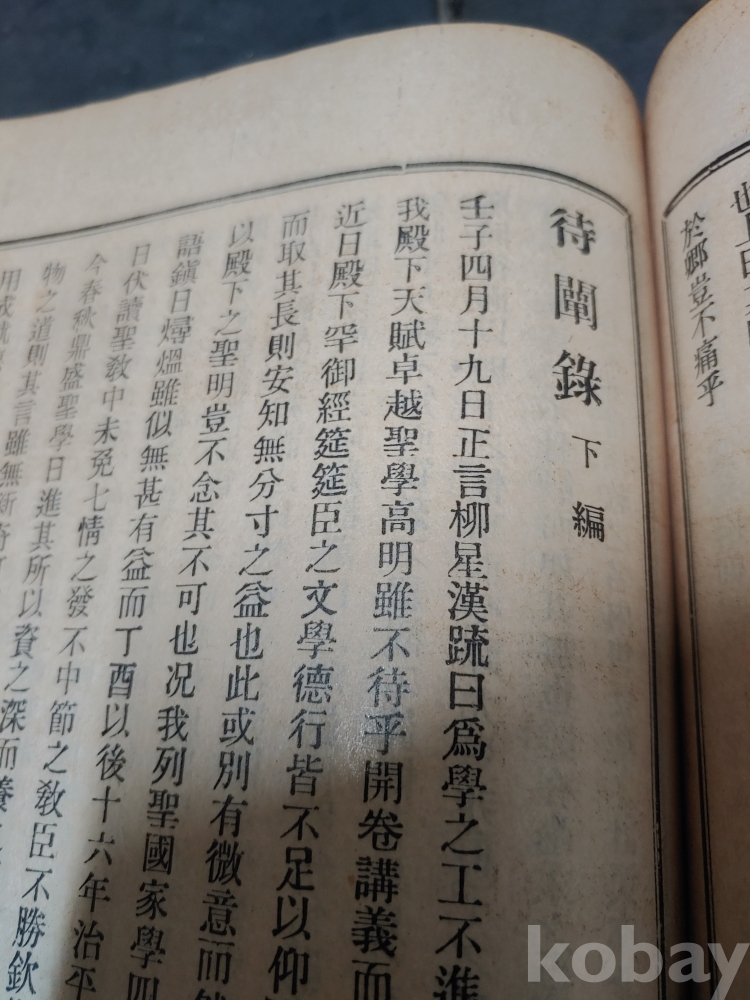 於鄉豈不痛乎
待闡錄 下編
壬子四月十九日正言柳星漢䟽曰爲學之工不進
我殿下天賦卓越聖學高明雖不待乎開卷講義而
近日殿下罕御經筵筵臣之文學德行皆不足以仰
而取其長則安知無分寸之益也此或別有微意而
以殿下之聖明豈不念其不可也况我列聖國家學四
語鎭日燖煴雖似無甚有益而丁酉以後十六年治平
日伏讀聖敎中未免七情之發不中節之敎臣不勝欽
今春秋鼎盛聖學日進其所以資之深而養
物之道則其言雖無新奇
kobay